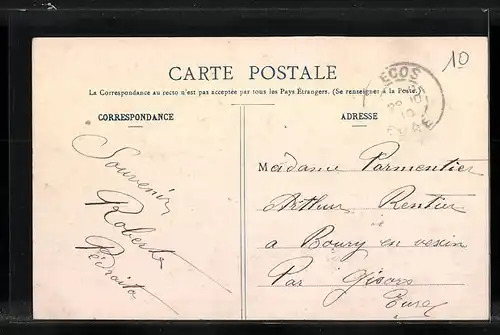 10
CARTE POSTALE
La Correspondance au recto n'est pas acceptée par tous les Pays Étrangers. (Se renseigner à la Poste.)
ECOS
29 10
10
EURE
CORRESPONDANCE
Souvenir
Robert
ADRESSE
Madame Parmentier
Arthur Rentier
a Boury en vexin
Par Gisors
Eure